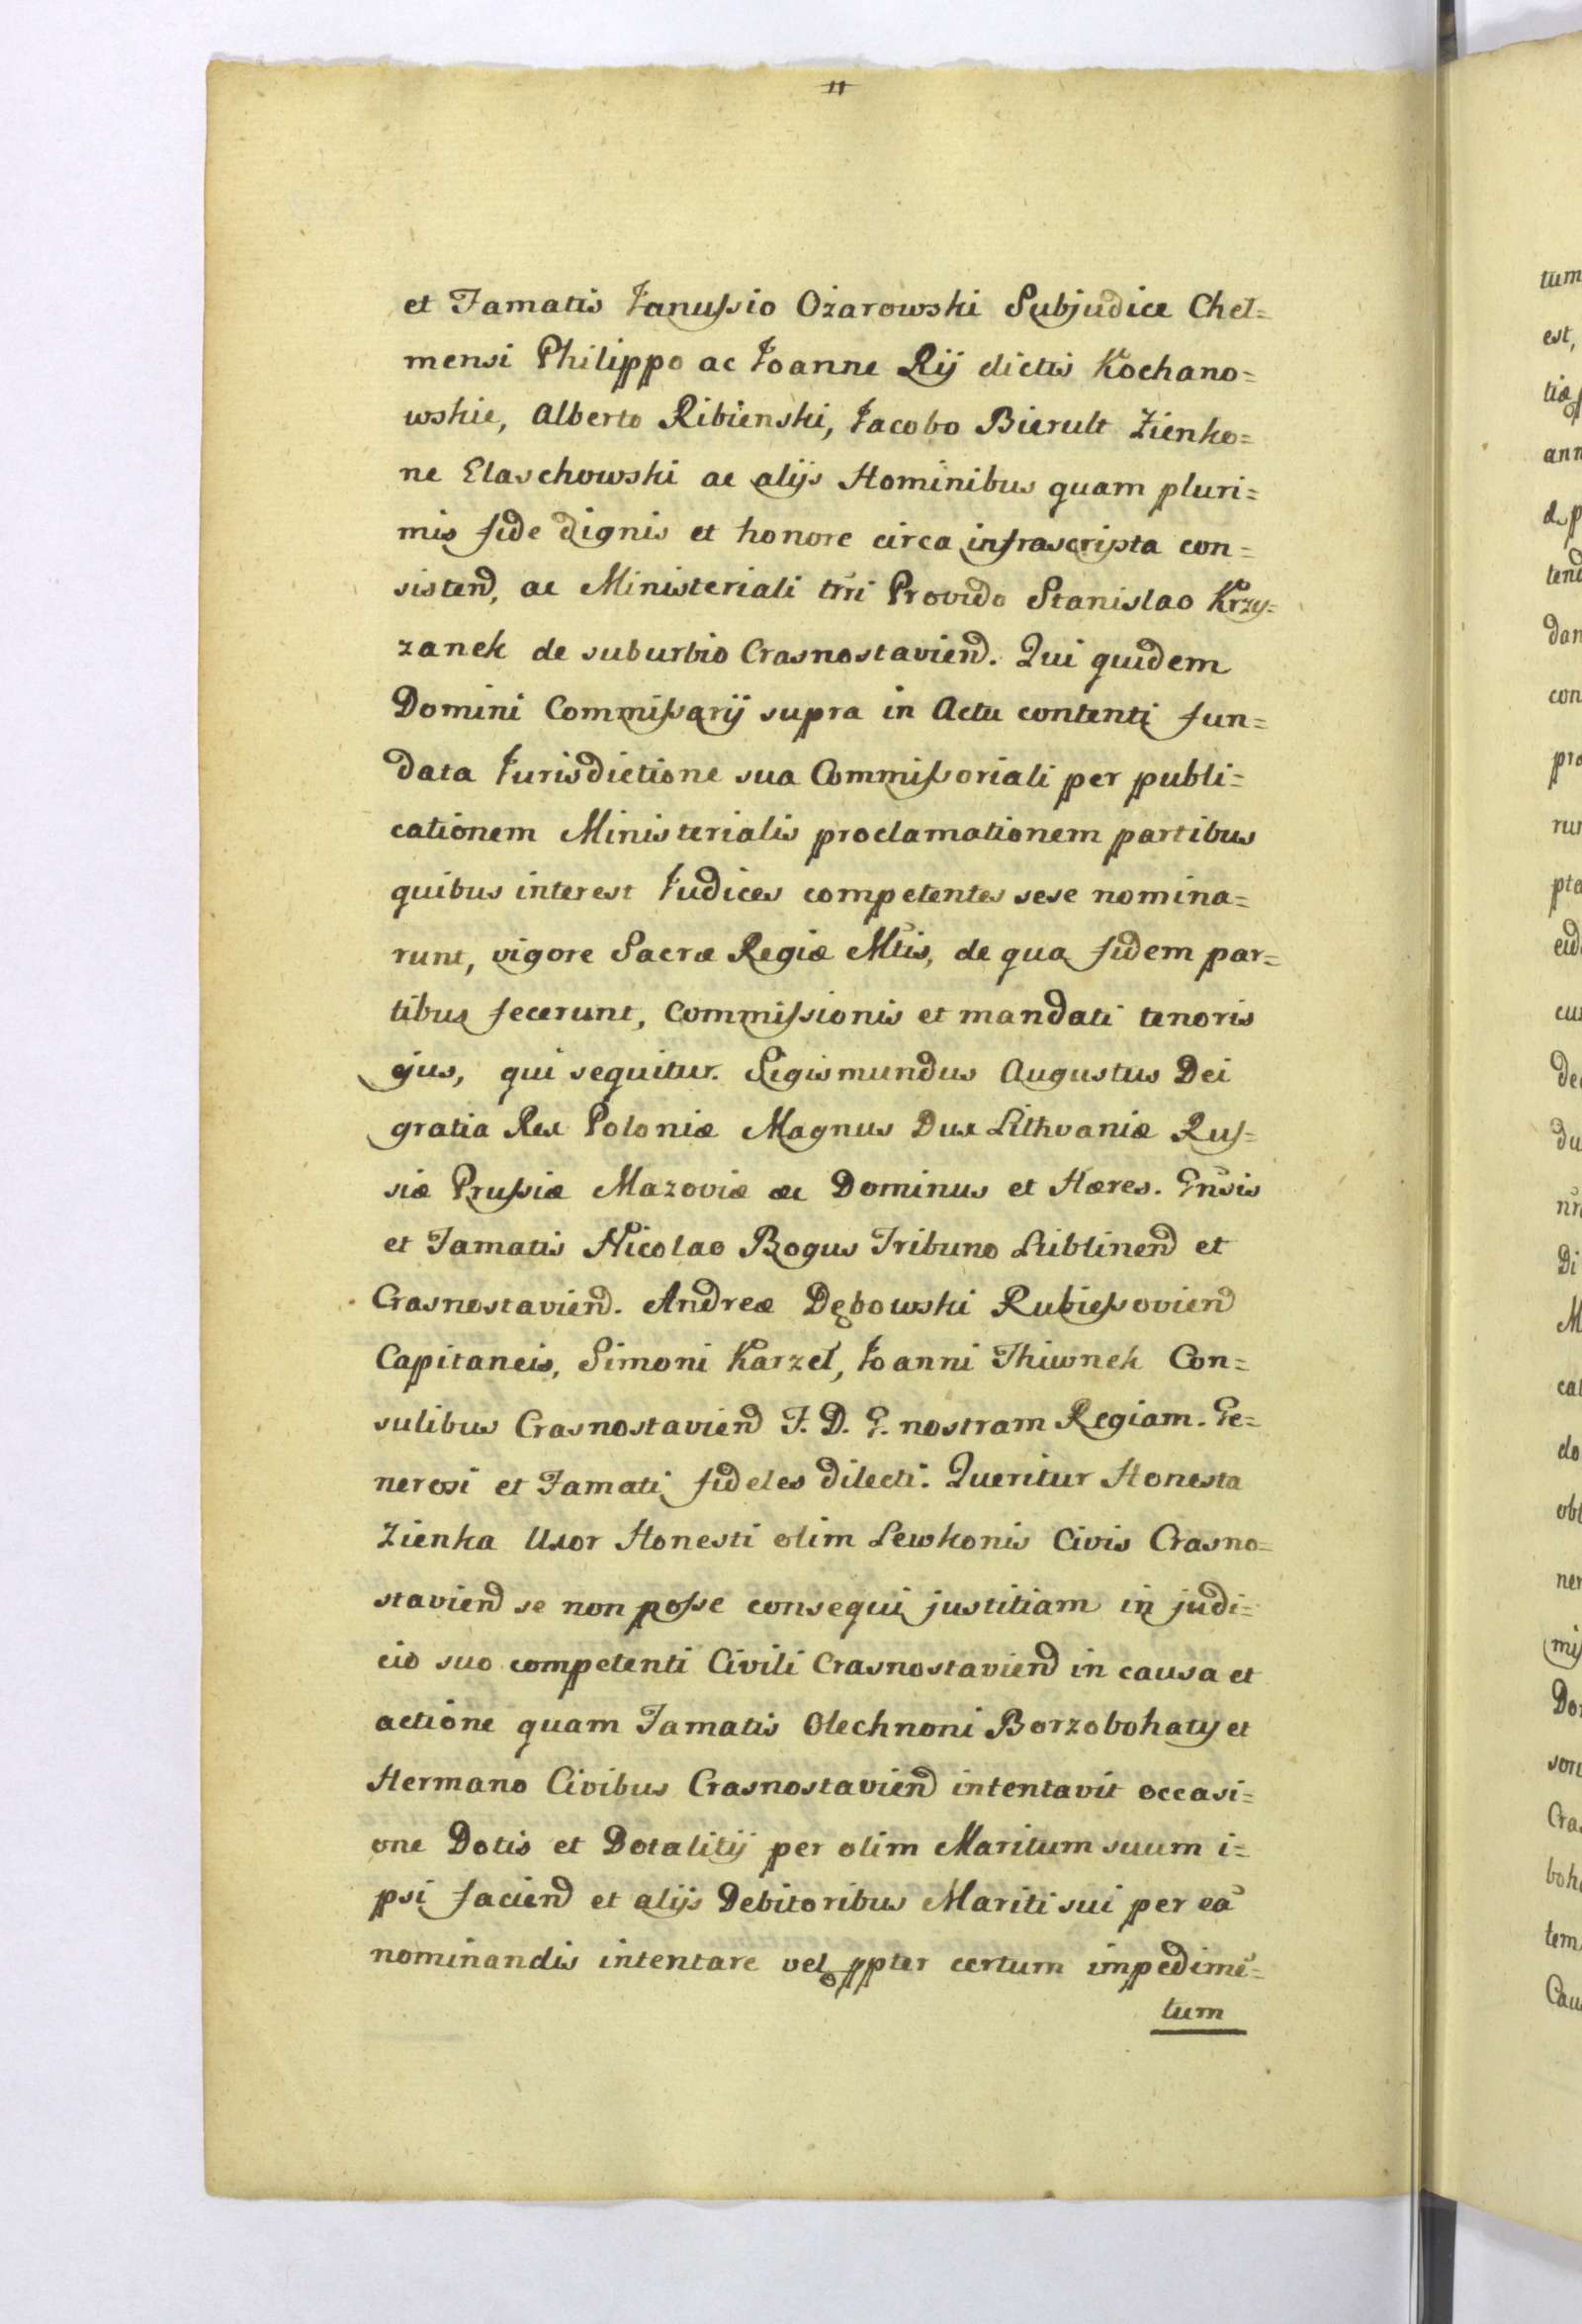 et Famatis Janussio Ożarowski Subjudice Chel=
mensi Philippo ac Joanne Rij dictis Kochano=
wskie, Alberto Ribienski, Jacobo Bierult Zienko=
ne Elaschowski ac alijs Hominibus quam pluri=
mis fide dignis et honore circa infrascripta con=
sistend, ac Ministeriali trri Provido Stanislao Krzy=
zanek de suburbio Crasnostaviend. Qui quidem
Domini Commissarij supra in Actu contenti fun=
data Jurisdictione sua Commissoriali per publi=
cationem Ministerialis proclamationem partibus
quibus interest Judices competentes sese nomina=
runt, vigore Sacræ Regiæ Mtis, de qua fidem par=
tibus fecerunt, Commissionis et mandati tenoris
ejus, qui sequitur. Sigismundus Augustus Dei
gratia Rex Poloniæ Magnus Dux Lithvaniæ Rus=
siæ Prussiæ Mazoviæ æc Dominus et Hæres. Gnsis
et Famatis Nicolao Bogus Tribuno Lublinend et
Crasnostaviend. Andreæ Dębowski Rubiessoviend
Capitaneis, Simoni Karzeł, Joanni Thiwnek Con=
sulibus Crasnostaviend F. D. G. nostram Regiam. Ge=
nerosi et Famati fideles dilecti. Queritur Honesta
Zienka Uxor Honesti olim Lewkonis Civis Crasno=
staviend se non posse consequi justitiam in judi=
cio suo competenti Civili Crasnostaviend in causa et
actione quam Famatis Olechnoni Borzobohaty et
Hermano Civibus Crasnostaviend intentavit occasi=
one Dotis et Dotalitij per olim Maritum suum i=
psi faciend et alijs Debitoribus Mariti sui per eā
nominandis intentare vel ppter certum impedimē=
tum
tum
est,
ann
tend
dan
con
pro
run
pta
eid
cu
de
du
Di
M
cat
do
obl
ner
mis
Dor
son
Cra
boh
tem
Cau